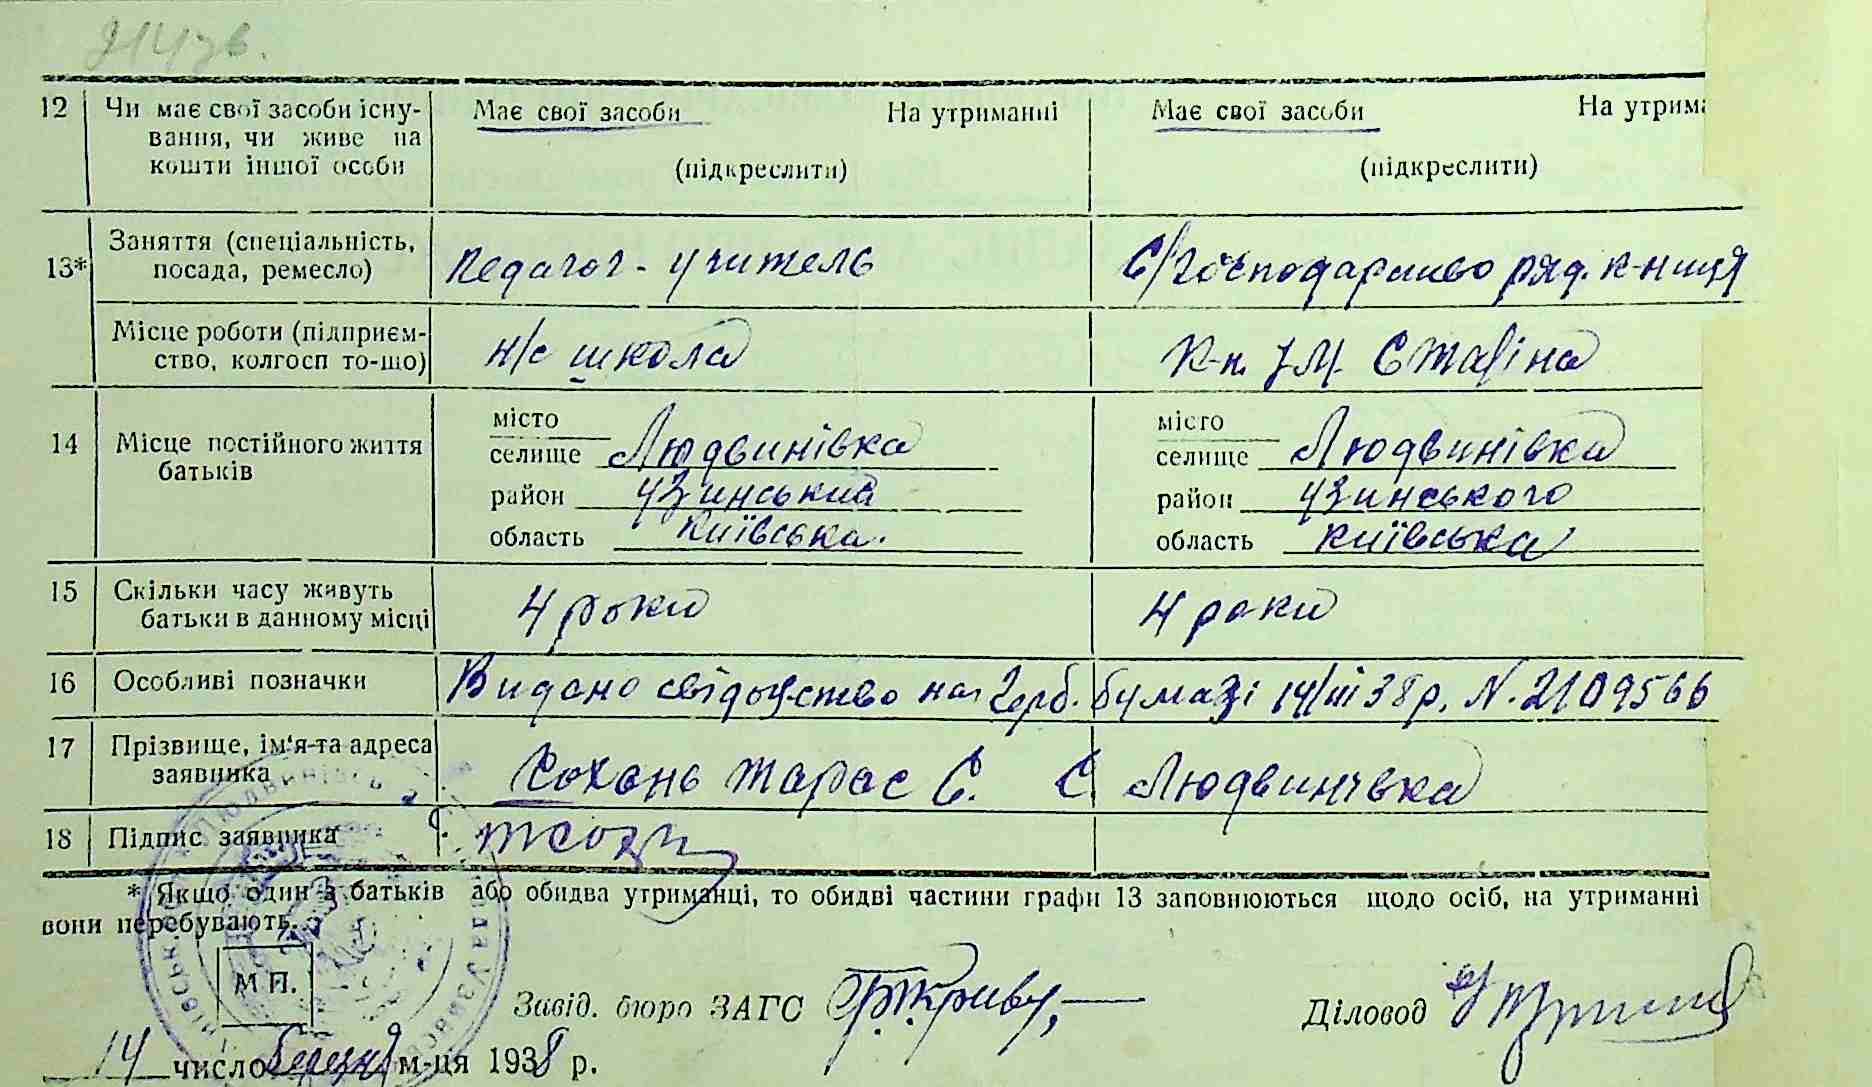 12 Чи має свої засоби існу- Має свої засоби На утриманні Має свої засоби На утрима
вання, чи живе на
кошти іншої особи (підкреслити) (підкреслити)
13* Заняття (спеціальність, посада, ремесло) педагог - учитель С/господарство ряд. к-ниця
Місце роботи (підприєм- н/с школа К-п. ім. Сталіна
ство, колгосп то-що)
14 Місце постійного життя батьків
місто місто
селище Людвинівка селище Людвинівка
район Узинський район Узинського
область Київська. область Київська
15 Скільки часу живуть 4 роки 4 роки
батьки в данному місці
16 Особливі позначки Видано свідоцтво на герб. бумазі 14/III 38 р. N. 2109566
17 Прізвище, ім'я-та адреса
заявника Сохань Тарас С. С. Людвинівка
18 Підпис заявника
* Якщо один з батьків або обидва утриманці, то обидві частини графи 13 заповнюються щодо осіб, на утриманні
вони перебувають.
М П.
Завід. бюро ЗАГС Діловод
14 число березня м-ця 1938 р.